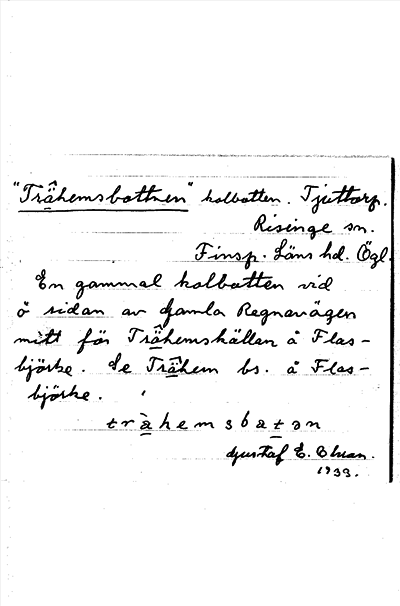 "Trähemsbottnen" kolbotten. Tjuttorp.
Risinge sn.
Finsp. Läns hd. Ögl.
En gammal kolbotten vid
ö sidan av Gamla Regnavägen
mitt för Trähemskällan å Flas-
björke. Se Trähem bs. å Flas-
björke.
trähemsbatən
Gustaf E.
1933.